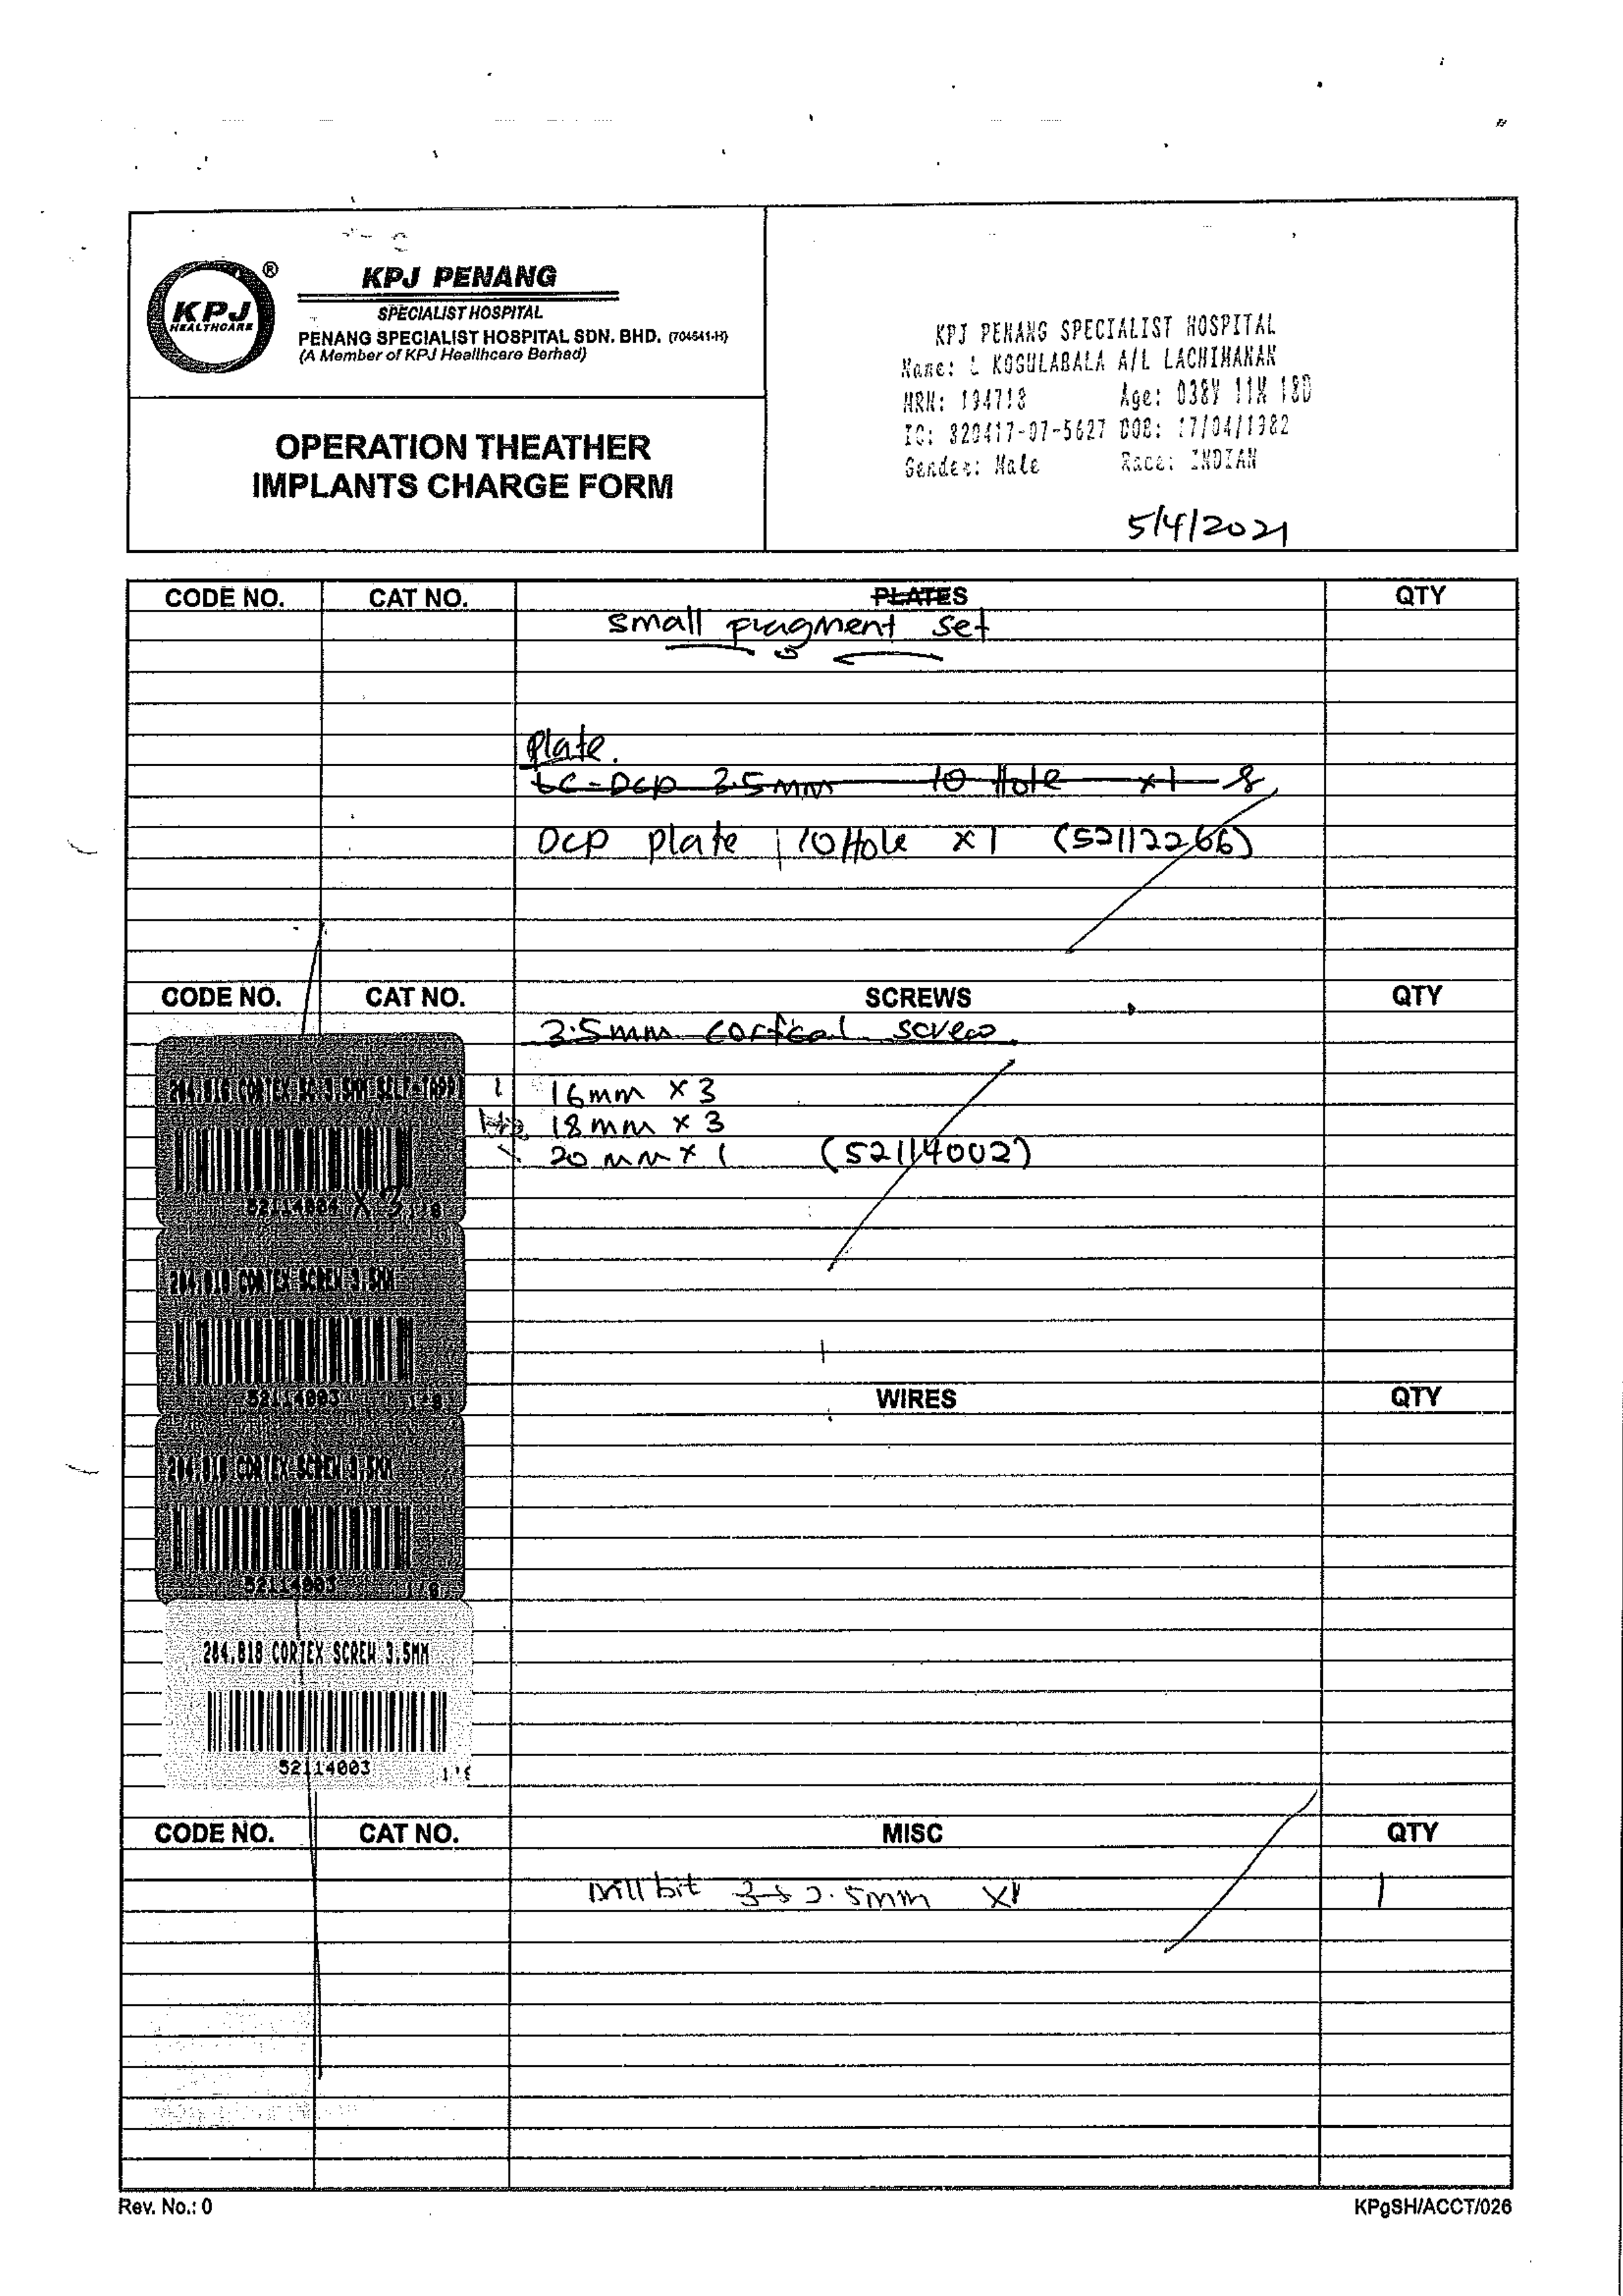 KPJ
HEALTHCARE
®
KPJ PENANG
SPECIALIST HOSPITAL
PENANG SPECIALIST HOSPITAL SDN. BHD. (704541-H)
(A Member of KPJ Healthcare Berhad)
OPERATION THEATHER
IMPLANTS CHARGE FORM
KPJ PENANG SPECIALIST HOSPITAL
Name: L KOGULABALA A/L LACHIMANAN
MRN: 194718 Age: 038Y 11M 18D
IC: 820417-07-5627 DOB: 17/04/1982
Gender: Male Race: INDIAN
5/4/2021
CODE NO. CAT NO. PLATES QTY
small fragment set
Plate.
LC-DCP 3.5mm 10 Hole x1
DCP plate 10 Hole x1 (52112266)
CODE NO. CAT NO. SCREWS QTY
3.5mm cortical screw
204.816 CORTEX SC 3.5MM SELF-TAPP
16mm x 3
18mm x 3
20mm x 1 (52114002)
52114004 x 3
204.818 CORTEX SCREW 3.5MM
52114003
WIRES QTY
204.818 CORTEX SCREW 3.5MM
52114003
204.818 CORTEX SCREW 3.5MM
52114003
CODE NO. CAT NO. MISC QTY
Drill bit 2.5mm x1 1
Rev. No.: 0
KPgSH/ACCT/026